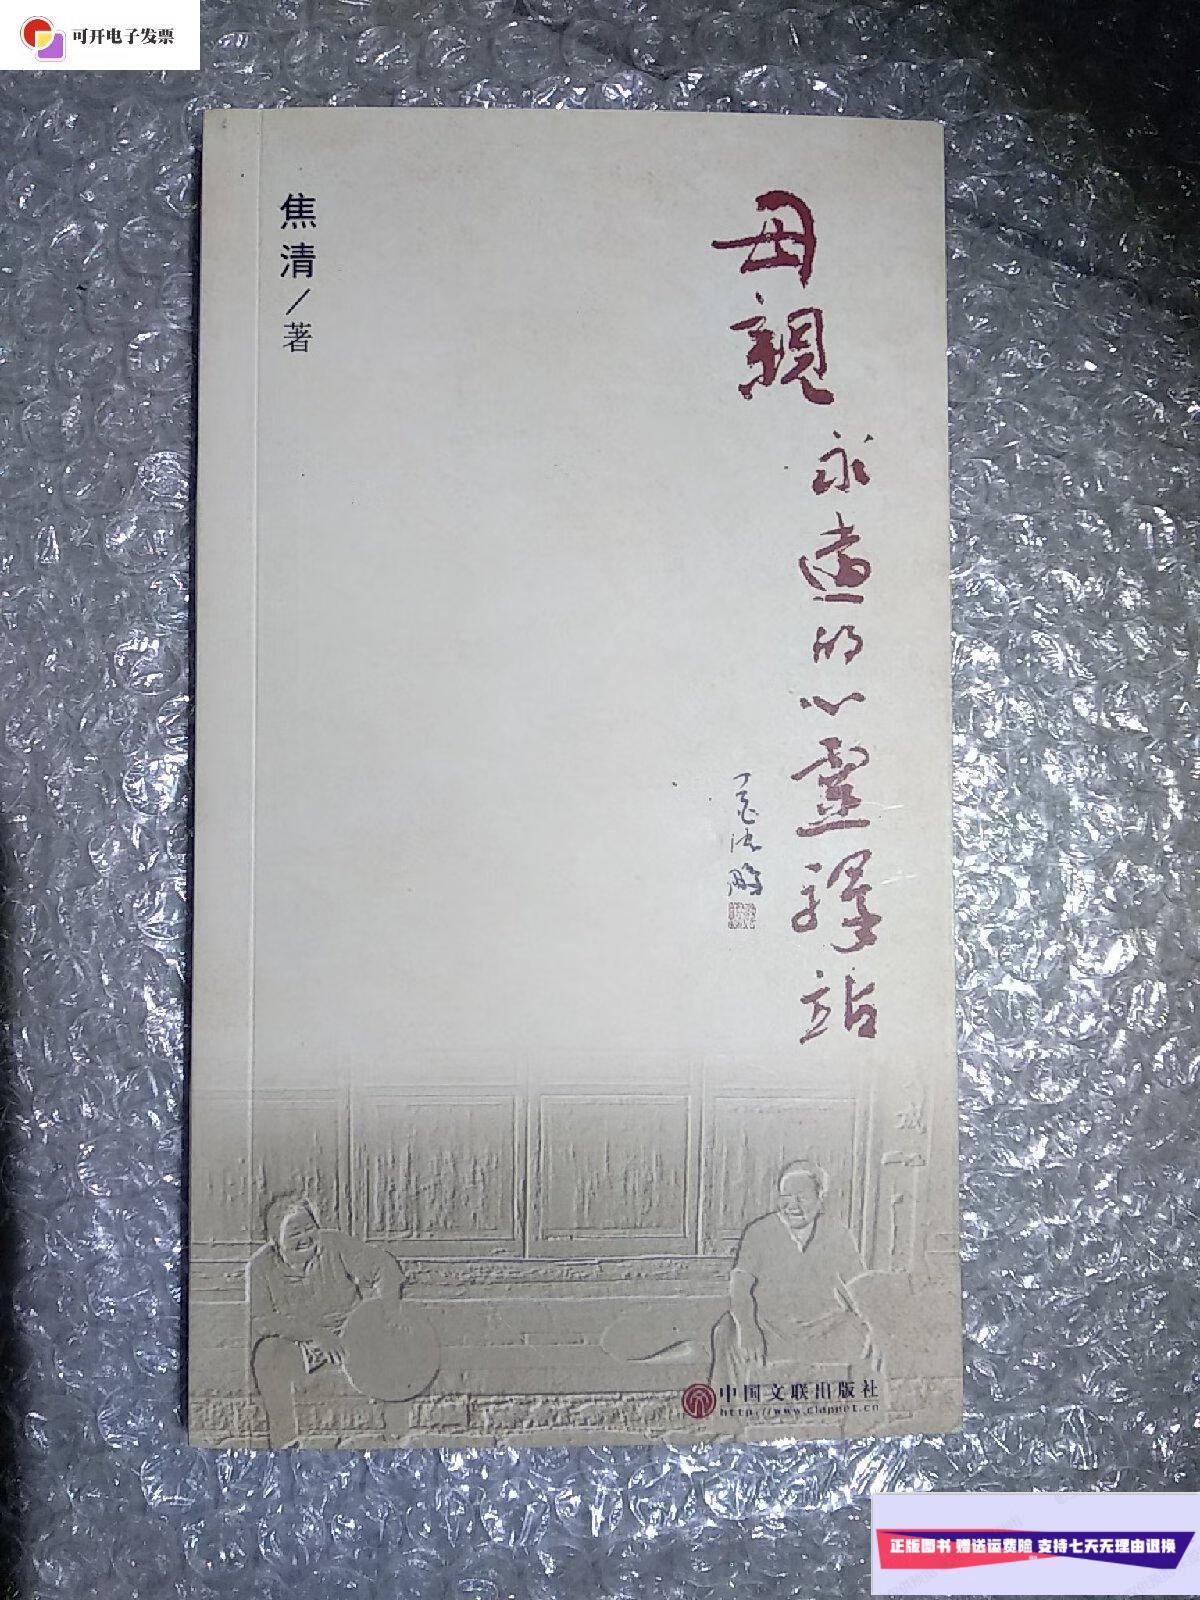 可开电子发票
母親
永遠的心靈驛站
焦清/著
中国文联出版社
http://www.clapnet.cn
正版图书 赠送运费险 支持七天无理由退换